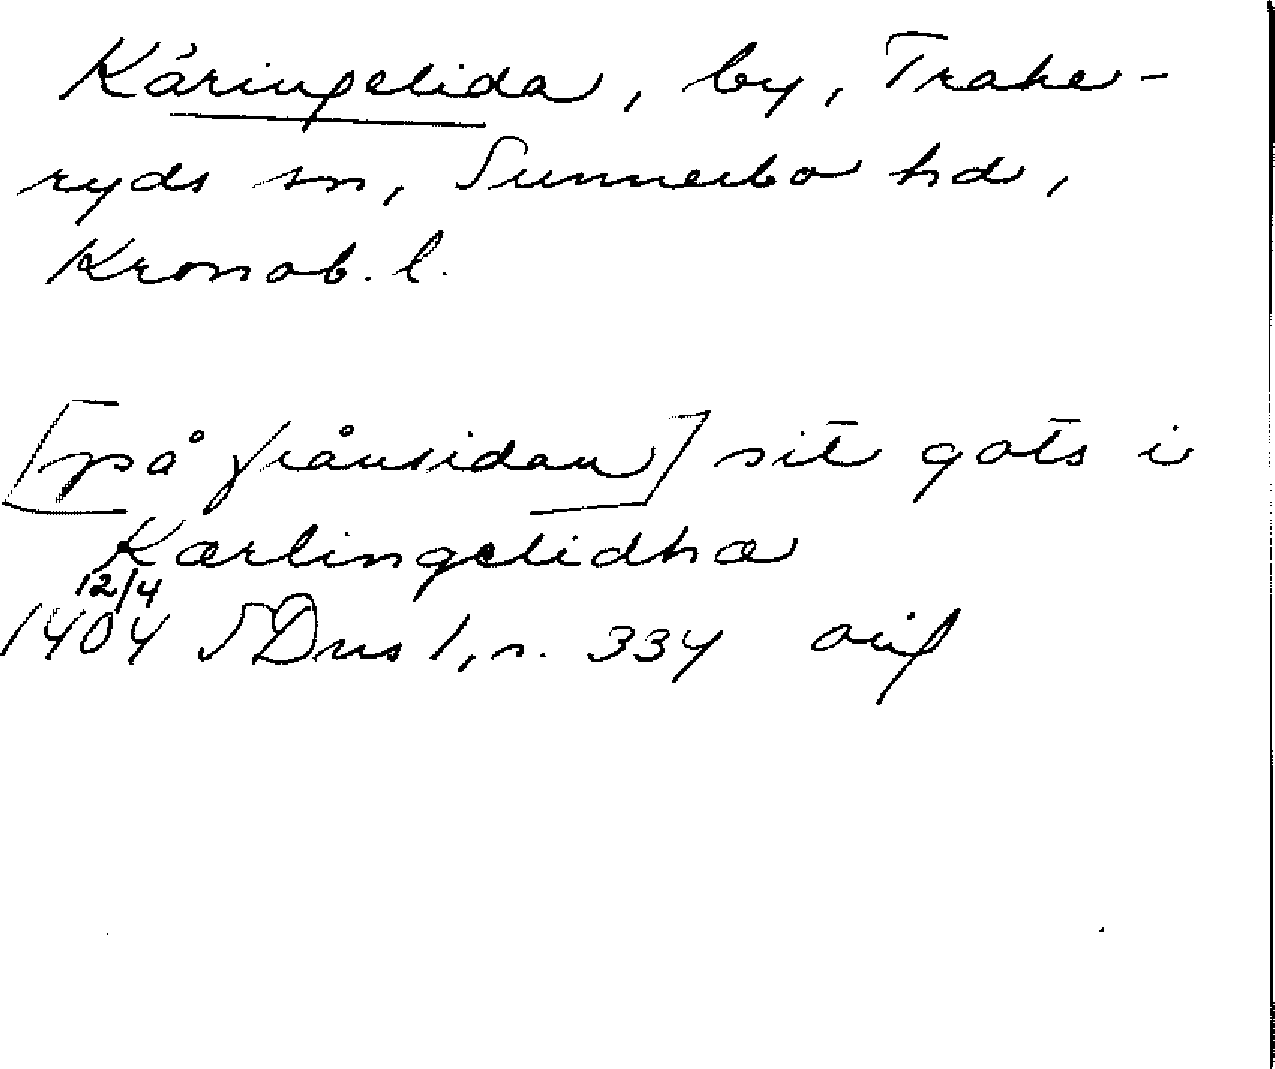 Käringelida, by, Trahe-
ryds sn, Sunnerbo hd,
Kronob. l.
[på frånsidan] sit gots i
Kærlingelidha
12/4
1404 SDns 1, n. 334 avs